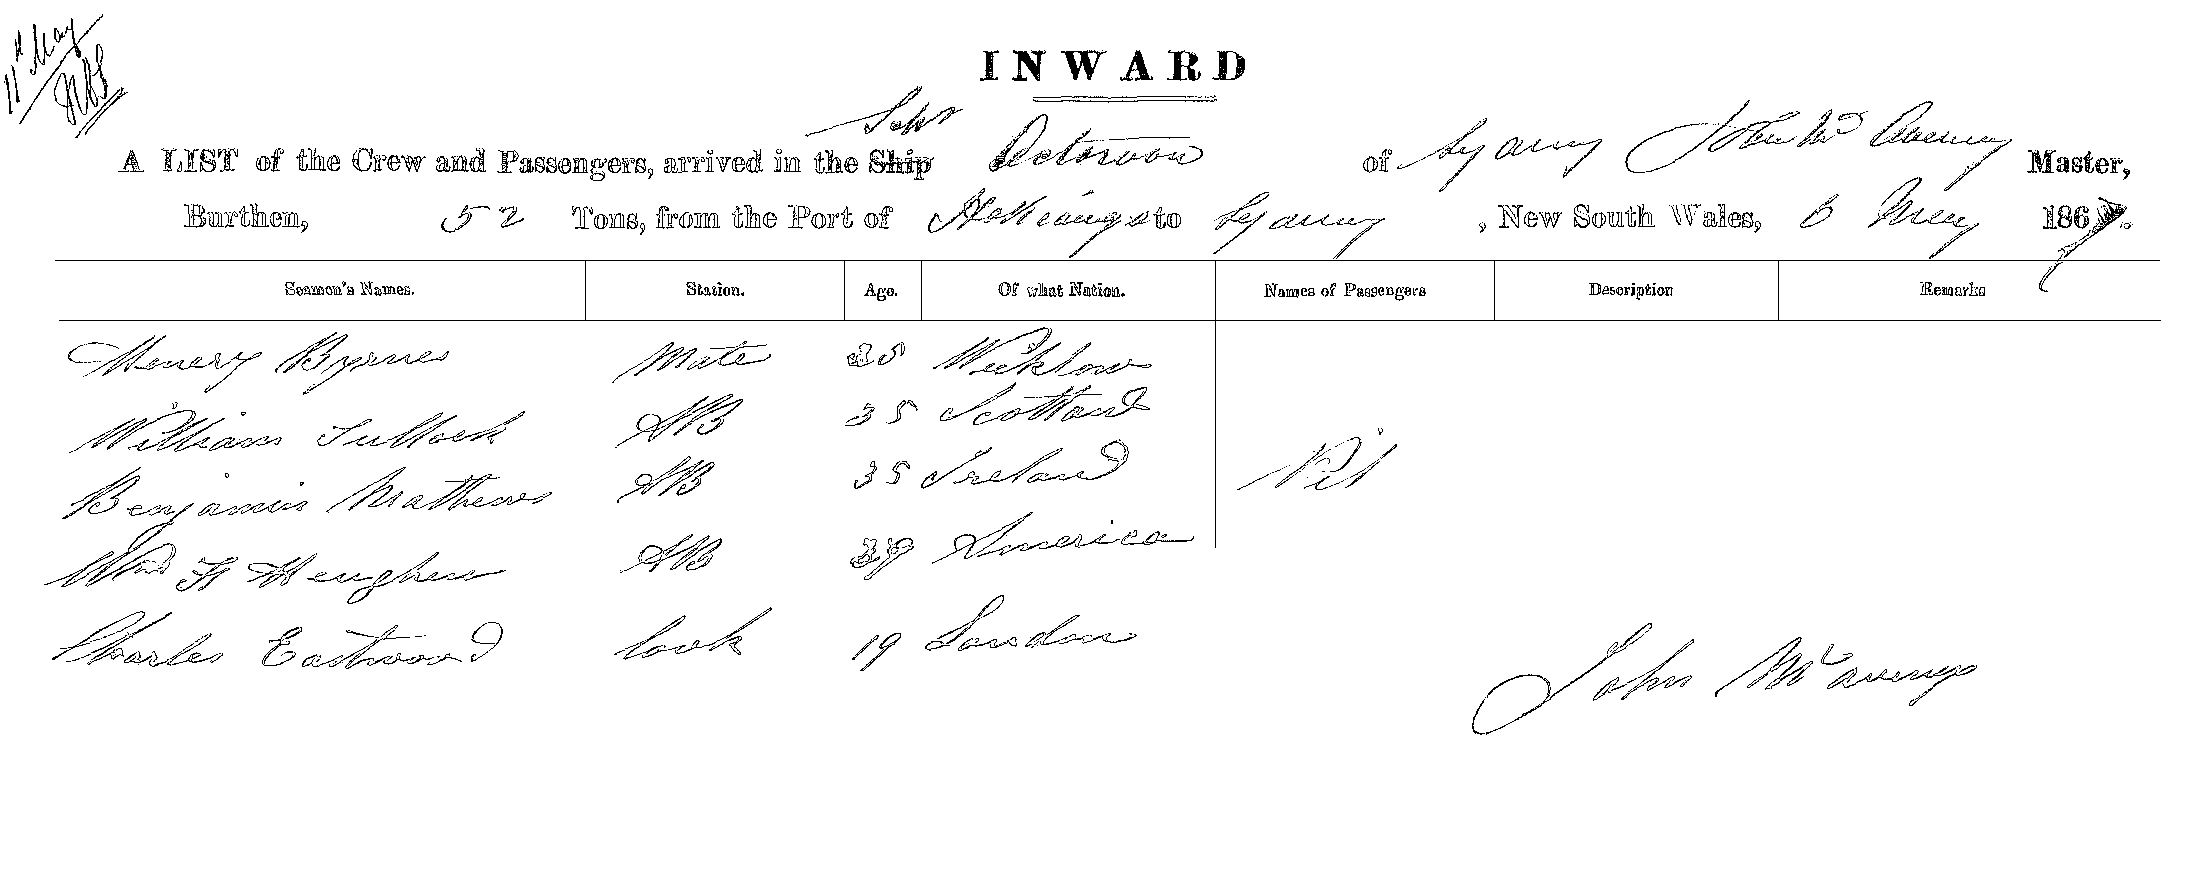 11th May
INWARD
A LIST of the Crew and Passengers, arrived in the Ship Schr of Sydney John Mc Aveney Master,
Burthen, 52 Tons, from the Port of to Sydney, New South Wales, 6 May 1867.
Seamen's Names. Station. Age. Of what Nation. Names of Passengers Description Remarks
Henery Byrnes Mate 25 Wicklow
William Tullock AB 35 Scotland
Benjamin Mathews AB 35 Ireland Nil
Wm H AB 39 America
Charles Eastwood Cook 19 London
John Mc aveney